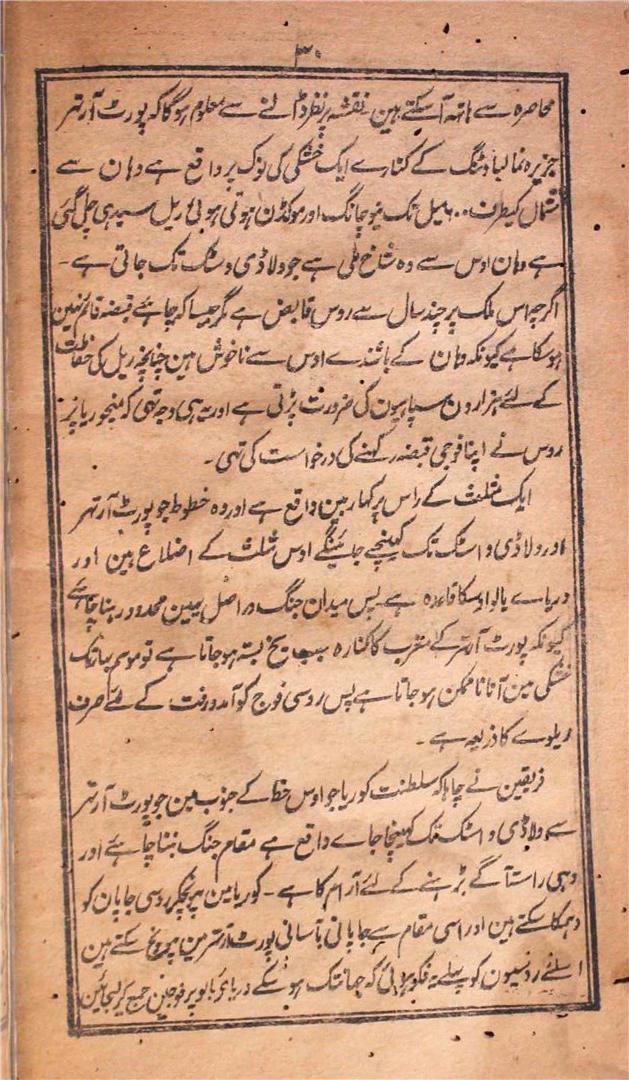 ۳۰
محاصرہ سے ہاتہہ آسکتے ہین نقشہ پر نظر ڈالنے سے معلوم ہوگا کہ پورٹ آرتہر
جزیرہ نما لیاوٹنگ کے کنارے ایک خشکی کی نوک پر واقع ہے وہان سے
شمال کیطرف ۶۰۰ میل تک نیوچانگ اور موکڈن ہوتی ہوئی ریل سیدہی چلی گئی
ہے وہان اوس سے وہ شاخ ملی ہے جو ولاڈی وسٹک تک جاتی ہے۔
اگرچہ اس ملک پر چند سال سے روس قابض ہے مگر جیسا کہ چاہئے قبضہ قائم نہین
ہوسکا ہے کیونکہ وہان کے باشندے اوس سے ناخوش ہین چنانچہ ریل کی حفاظت
کے لئے ہزارون سپاہیون کی ضرورت پڑتی ہے اور یہ ہی وجہ تہی کہ منچوریا پر
روس نے اپنا فوجی قبضہ رکہنے کی درخواست کی تہی۔
ایک مثلث کے راس پر کہاربین واقع ہے اور وہ خطوط جو پورٹ آرتہر
اور ولاڈی واسٹک تک کہینچے جائینگے اوس مثلث کے اضلاع ہین اور
دریاے یالو اوسکا قاعدہ ہے پس میدان جنگ دراصل یہین محدود رہنا چاہئے
کیونکہ پورٹ آرتہر کے مغرب کا کنارہ سب یخ بستہ ہوجاتا ہے تو موسم بہار تک
خشکی مین آنا ناممکن ہوجاتا ہے پس روسی فوج کو آمدورفت کے لئے صرف
ریلوے کا ذریعہ ہے۔
فریقین نے چاہا کہ سلطنت کوریا جو اوس خط کے جنوب مین جو پورٹ آرتہر
سے ولاڈی واسٹک تک کہینچا جاے واقع ہے مقام جنگ بننا چاہئے اور
وہی راستا آگے بڑہنے کے لئے آرام کا ہے۔ کوریا مین پہنچکر روسی جاپان کو
دہمکا سکتے ہین اور اسی مقام سے جاپانی بآسانی پورٹ آرتہر مین پہونچ سکتے ہین
اسلئے روسیون کو پہلے یہ فکر ہوئی کہ جہانتک ہوسکے دریاے یالو پر فوجین جمع کر لیجائین